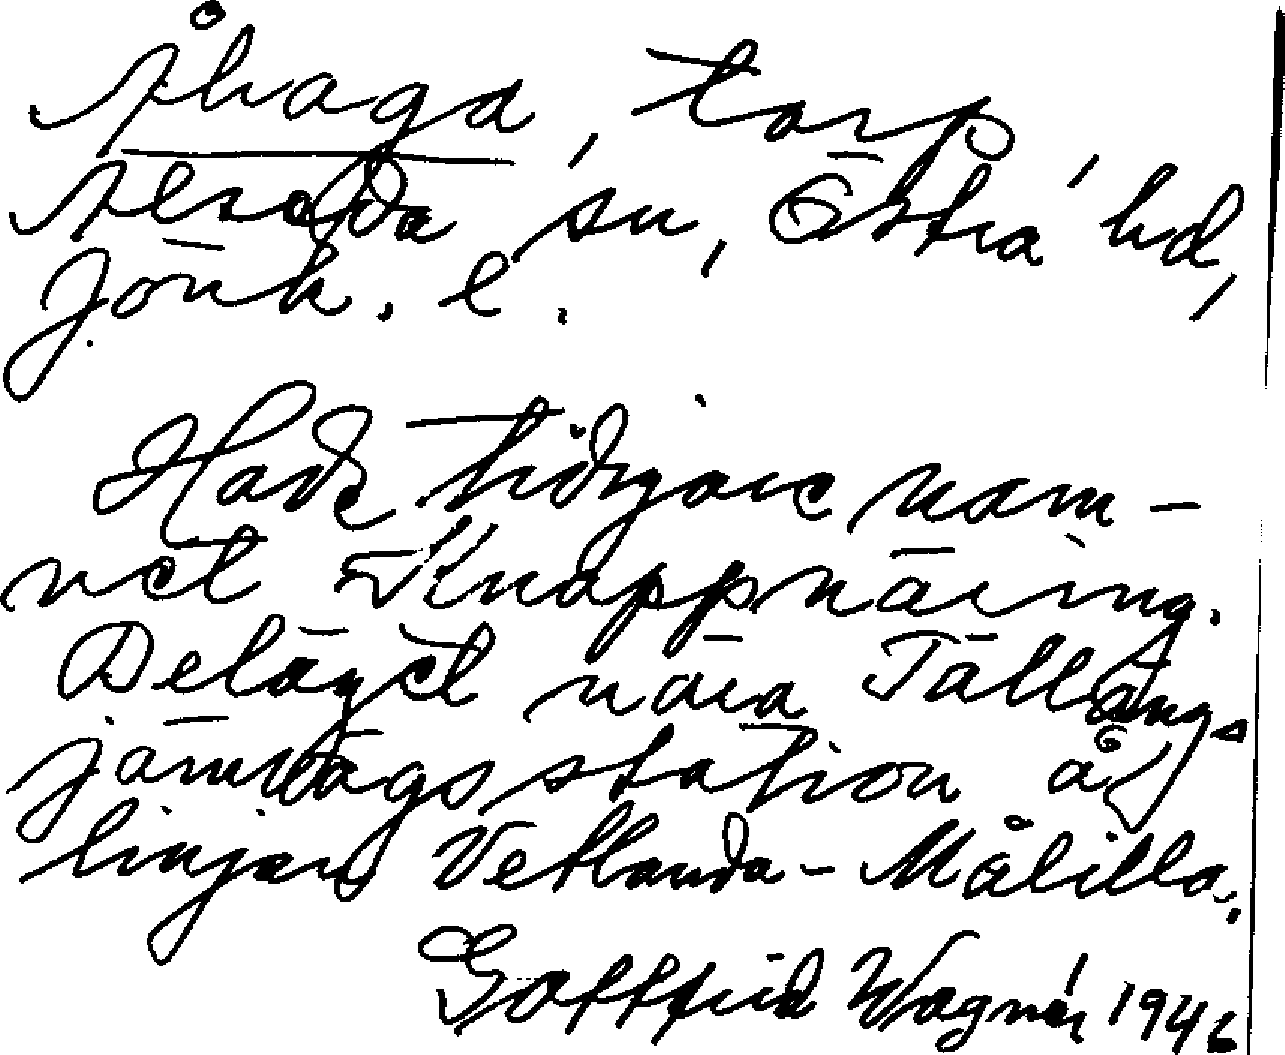 Åhaga, torp,
Alseda sn, Östra hd,
Jönk. l.
Hade tidigare nam-
net Knappnäring.
Beläget nära Tälläng
järnvägsstation å
linjen Vetlanda - Målilla.
Gottfrid Wagnér 1946